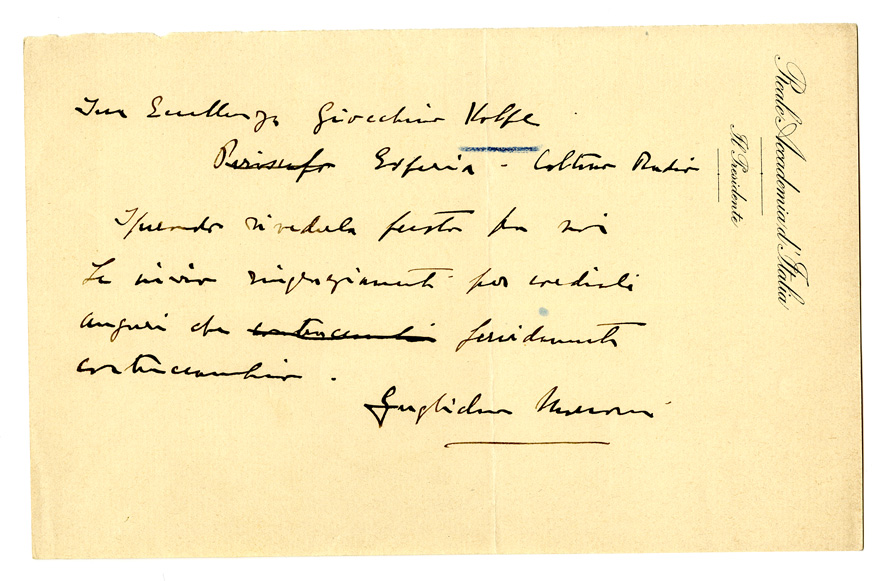 Sua Eccellenza Giocchino Volpe
Piroscafo Esperia - Coltano Radio
Sperando rivederla presto fra noi
Le invio ringraziamenti per cordiali
auguri che contraccambio fervidamente
contraccambio.
Guglielmo Marconi
Reale Accademia d'Italia
Il Presidente